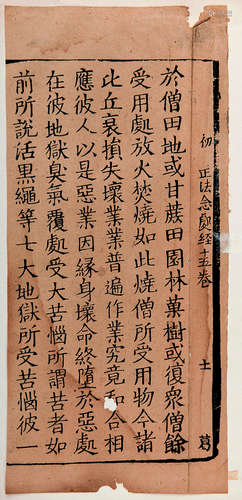 於僧田地或甘蔗田園林菓樹或復衆僧餘
受用處放火焚燒如此燒僧所受用物令諸
比丘衰損失壞業業普遍作業究竟和合相
應彼人以是惡業因緣身壞命終墮於惡處
在彼地獄臭氣覆處受大苦惱所謂苦者如
前所說活黑繩等七大地獄所受苦惱彼一
初 正法念處经十五卷 士 葛